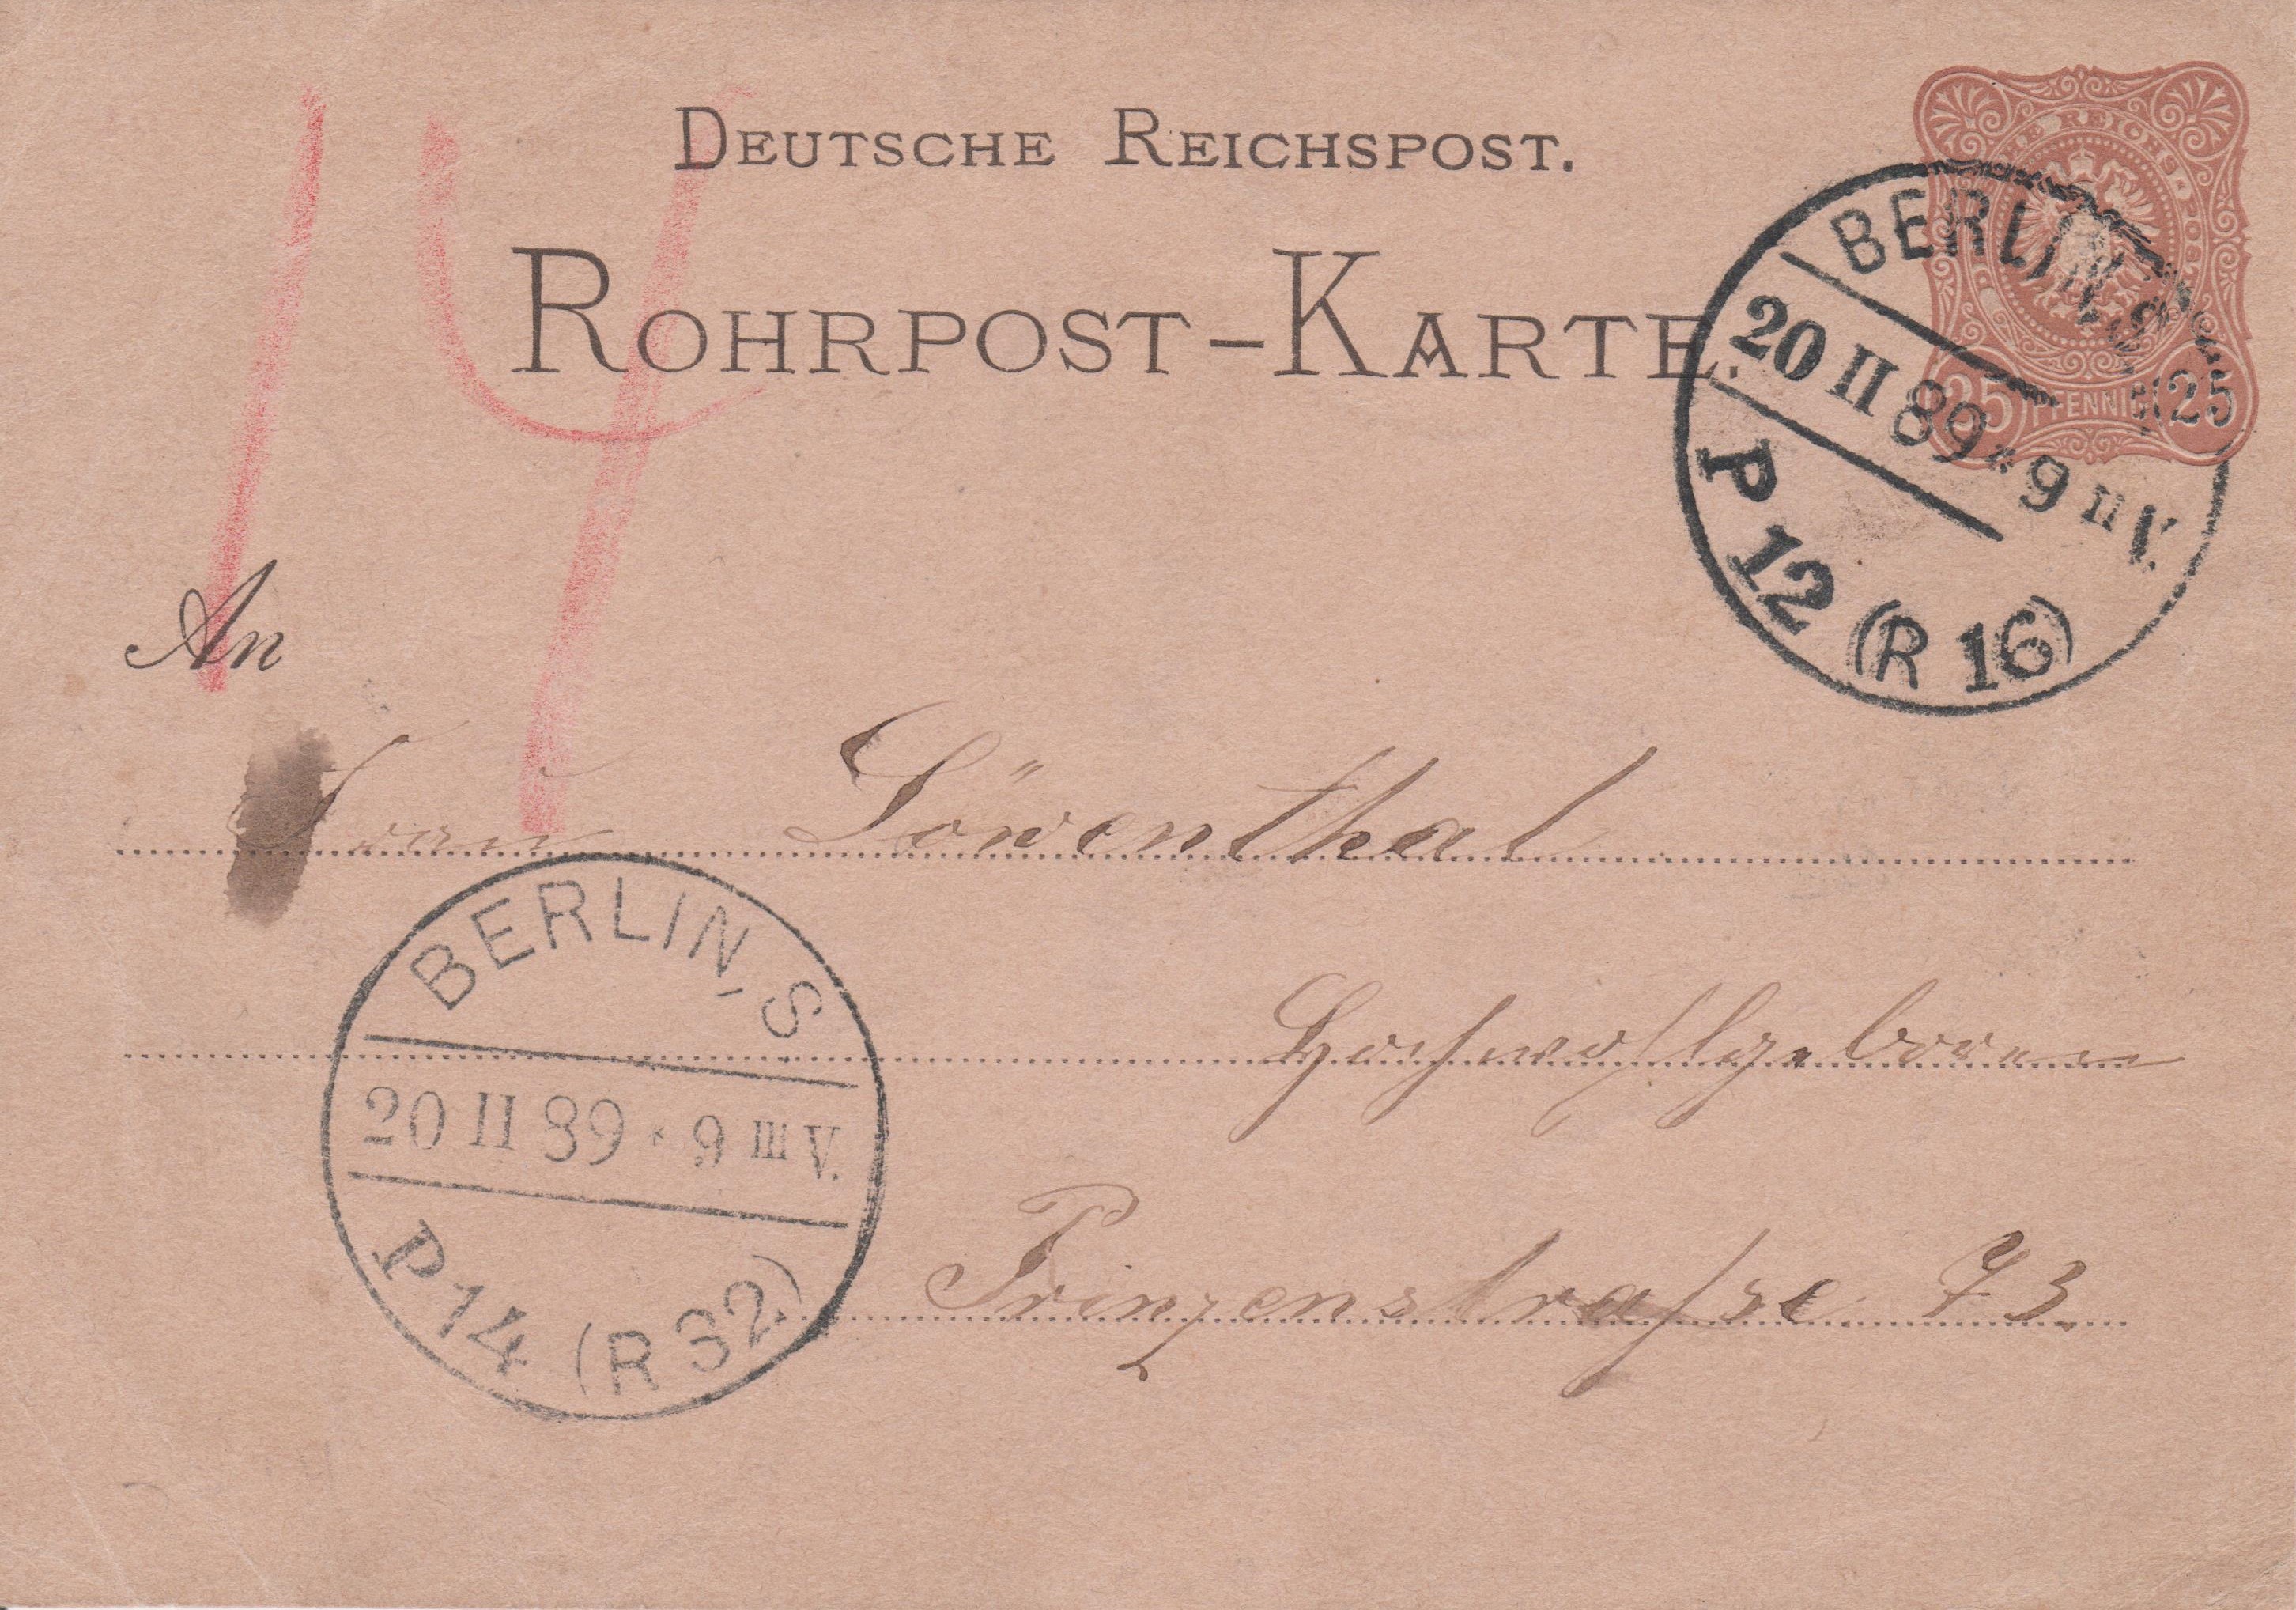 14
DEUTSCHE REICHSPOST.
ROHRPOST-KARTE.
DEUTSCHE REICHSPOST
25 PFENNIG 25
BERLIN, S.W.
20 II 89 * 9 II V.
P 12 (R 16)
An
Frau Löwenthal
Hochwohlgeboren
Prinzenstraße 73.
BERLIN, S
20 II 89 * 9 III V.
P 14 (R 32)